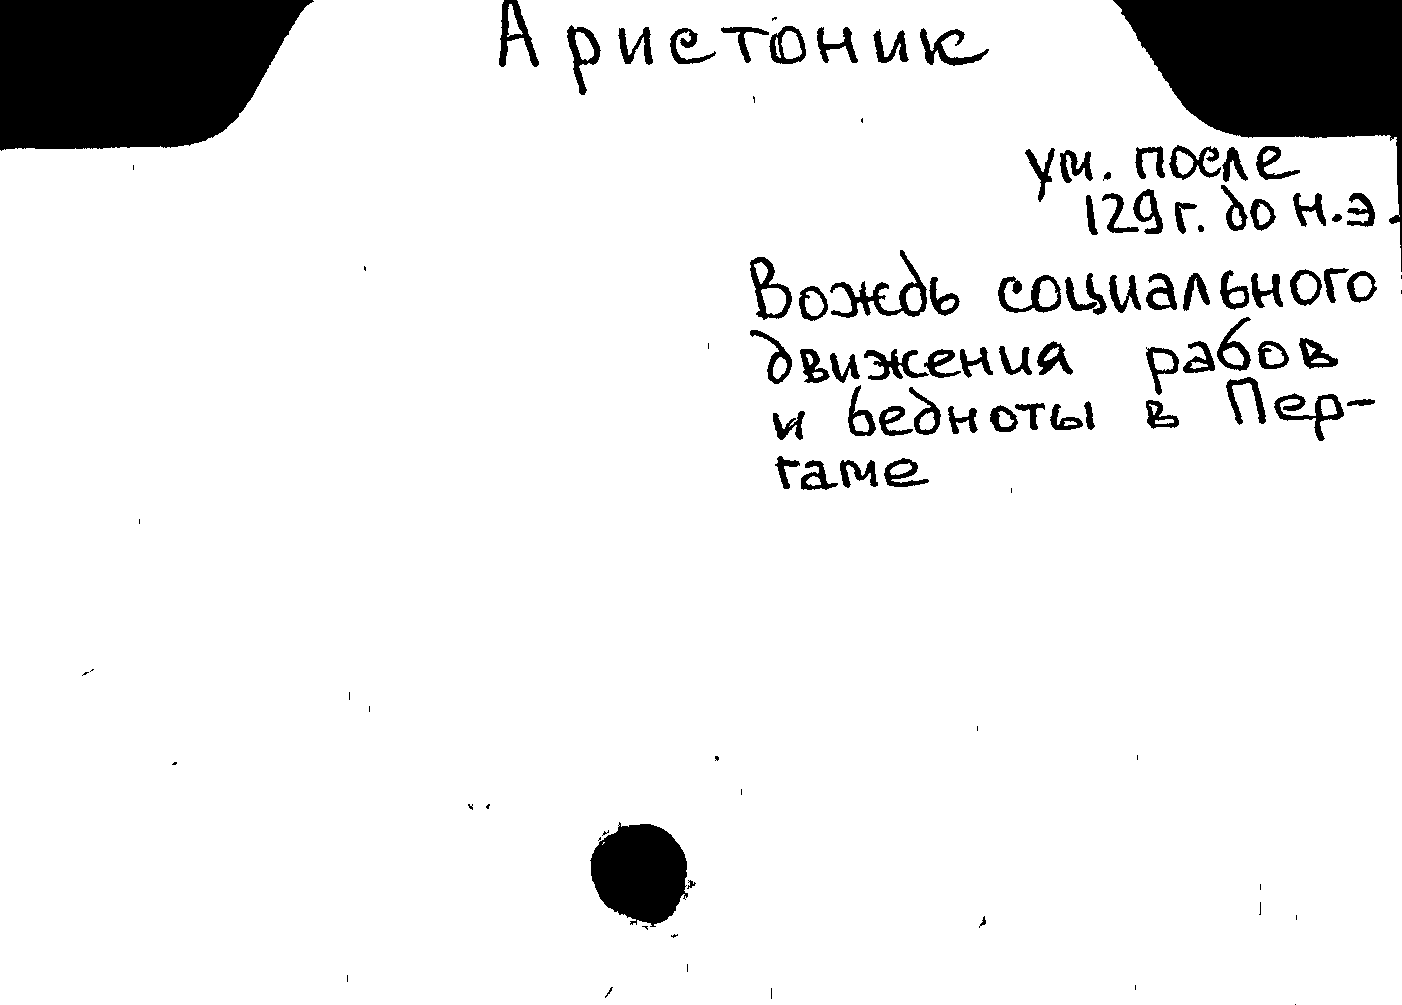 Аристоник
ум. после
129 г. до н.э.
Вождь социального
движения рабов
и бедноты в Пер-
гаме